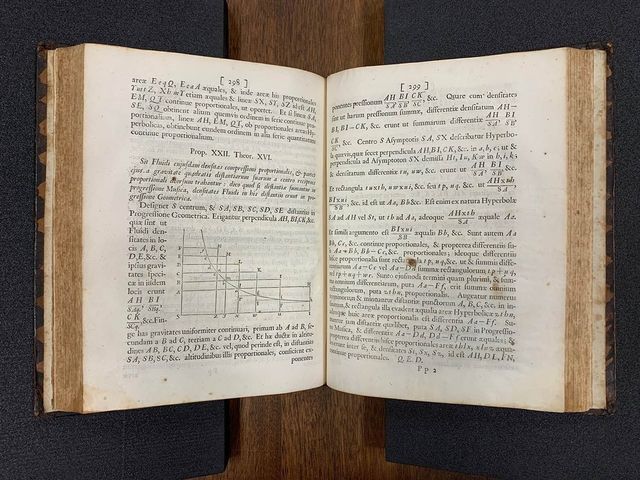 [ 298 ]
areæ EeqQ, EeaA æquales, & inde areæ his proportionales
TutZ, XhwT etiam æquales & lineæ SX, ST, SZ id est AH,
EM, QT continue proportionales, ut oportet. Et si lineæ SA,
SE, SQ obtinent alium quemvis ordinem in serie continue pro-
portionalium, lineæ AH, EM, QT, ob proportionales areas Hy-
perbolicas, obtinebunt eundem ordinem in alia serie quantitatum
continue proportionalium.
Prop. XXII. Theor. XVI.
Sit Fluidi cujusdam densitas compressioni proportionalis, & partes
ejus a gravitate quadratis distantiarum suarum a centro reciproce
proportionali deorsum trahantur: dico quod si distantiæ sumantur in
progressione Musica, densitates Fluidi in his distantiis erunt in pro-
gressione Geometrica.
Designet S centrum, & SA, SB, SC, SD, SE distantias in
Progressione Geometrica. Erigantur perpendicula AH, BI, CK, &c.
quæ sint ut
Fluidi den-
sitates in lo-
cis A, B, C,
D, E, &c. &
ipsius gravi-
tates speci-
ficæ in iisdem
locis erunt
AH BI
SAq. SBq.
CK
SCq. &c. Fin-
ge has gravitates uniformiter continuari, primam ab A ad B, se-
cundam a B ad C, tertiam a C ad D, &c. Et hæ ductæ in altitu-
dines AB, BC, CD, DE, &c. vel, quod perinde est, in distantias
SA, SB, SC, &c. altitudinibus illis proportionales, conficient ex-
ponentes
[ 299 ]
ponentes pressionum AH/SA, BI/SB, CK/SC, &c. Quare cum densitates
sint ut harum pressionum summæ, differentiæ densitatum AH−
BI, BI−CK, &c. erunt ut summarum differentiæ AH/SA, BI/SB,
CK/SC, &c. Centro S Asymptotis SA, SX describatur Hyperbo-
la quævis, quæ secet perpendicula AH, BI, CK, &c. in a, b, c, ut &
perpendicula ad Asymptoton SX demissa Ht, Iu, Kw in h, i, k;
& densitatum differentiæ tu, uw, &c. erunt ut AH/SA, BI/SB, &c.
Et rectangula tu×th, uw×ui, &c. seu tp, uq, &c. ut AH×th/SA,
BI×ui/SB, &c. id est ut Aa, Bb &c. Est enim ex natura Hyperbolæ
SA ad AH vel St, ut th ad Aa, adeoque AH×th/SA æquale Aa.
Et simili argumento est BI×ui/SB æqualis Bb, &c. Sunt autem Aa
Bb, Cc, &c. continue proportionales, & propterea differentiis su-
is Aa−Bb, Bb−Cc, &c. proportionales; ideoque differentiis
hisce proportionalia sunt rectangula tp, uq, &c. ut & summis diffe-
rentiarum Aa−Cc vel Aa−Dd summæ rectangulorum tp+uq,
vel tp+uq+wr. Sunto ejusmodi termini quam plurimi, & sum-
ma omnium differentiarum, puta Aa−Ff, erit summæ omnium
rectangulorum, puta zthn, proportionalis. Augeatur numerus
terminorum & minuantur distantiæ punctorum A, B, C, &c. in in-
finitum, & rectangula illa evadent æqualia areæ Hyperbolicæ zthn,
adeoque huic areæ proportionalis est differentia Aa−Ff. Su-
mantur jam distantiæ quælibet, puta SA, SD, SF in Progressio-
ne Musica, & differentiæ Aa−Dd, Dd−Ff erunt æquales; &
propterea differentiis hisce proportionales areæ thlx, xlnz æqua-
les erunt inter se, & densitates St, Sx, Sz, id est AH, DL, FN,
continue proportionales. Q. E. D.
Pp 2